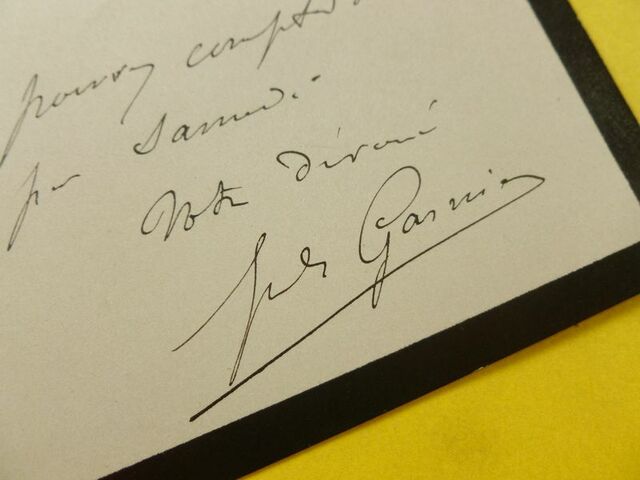 pouvez compter
par Samedi.
Votre dévoué
Jules Garnier